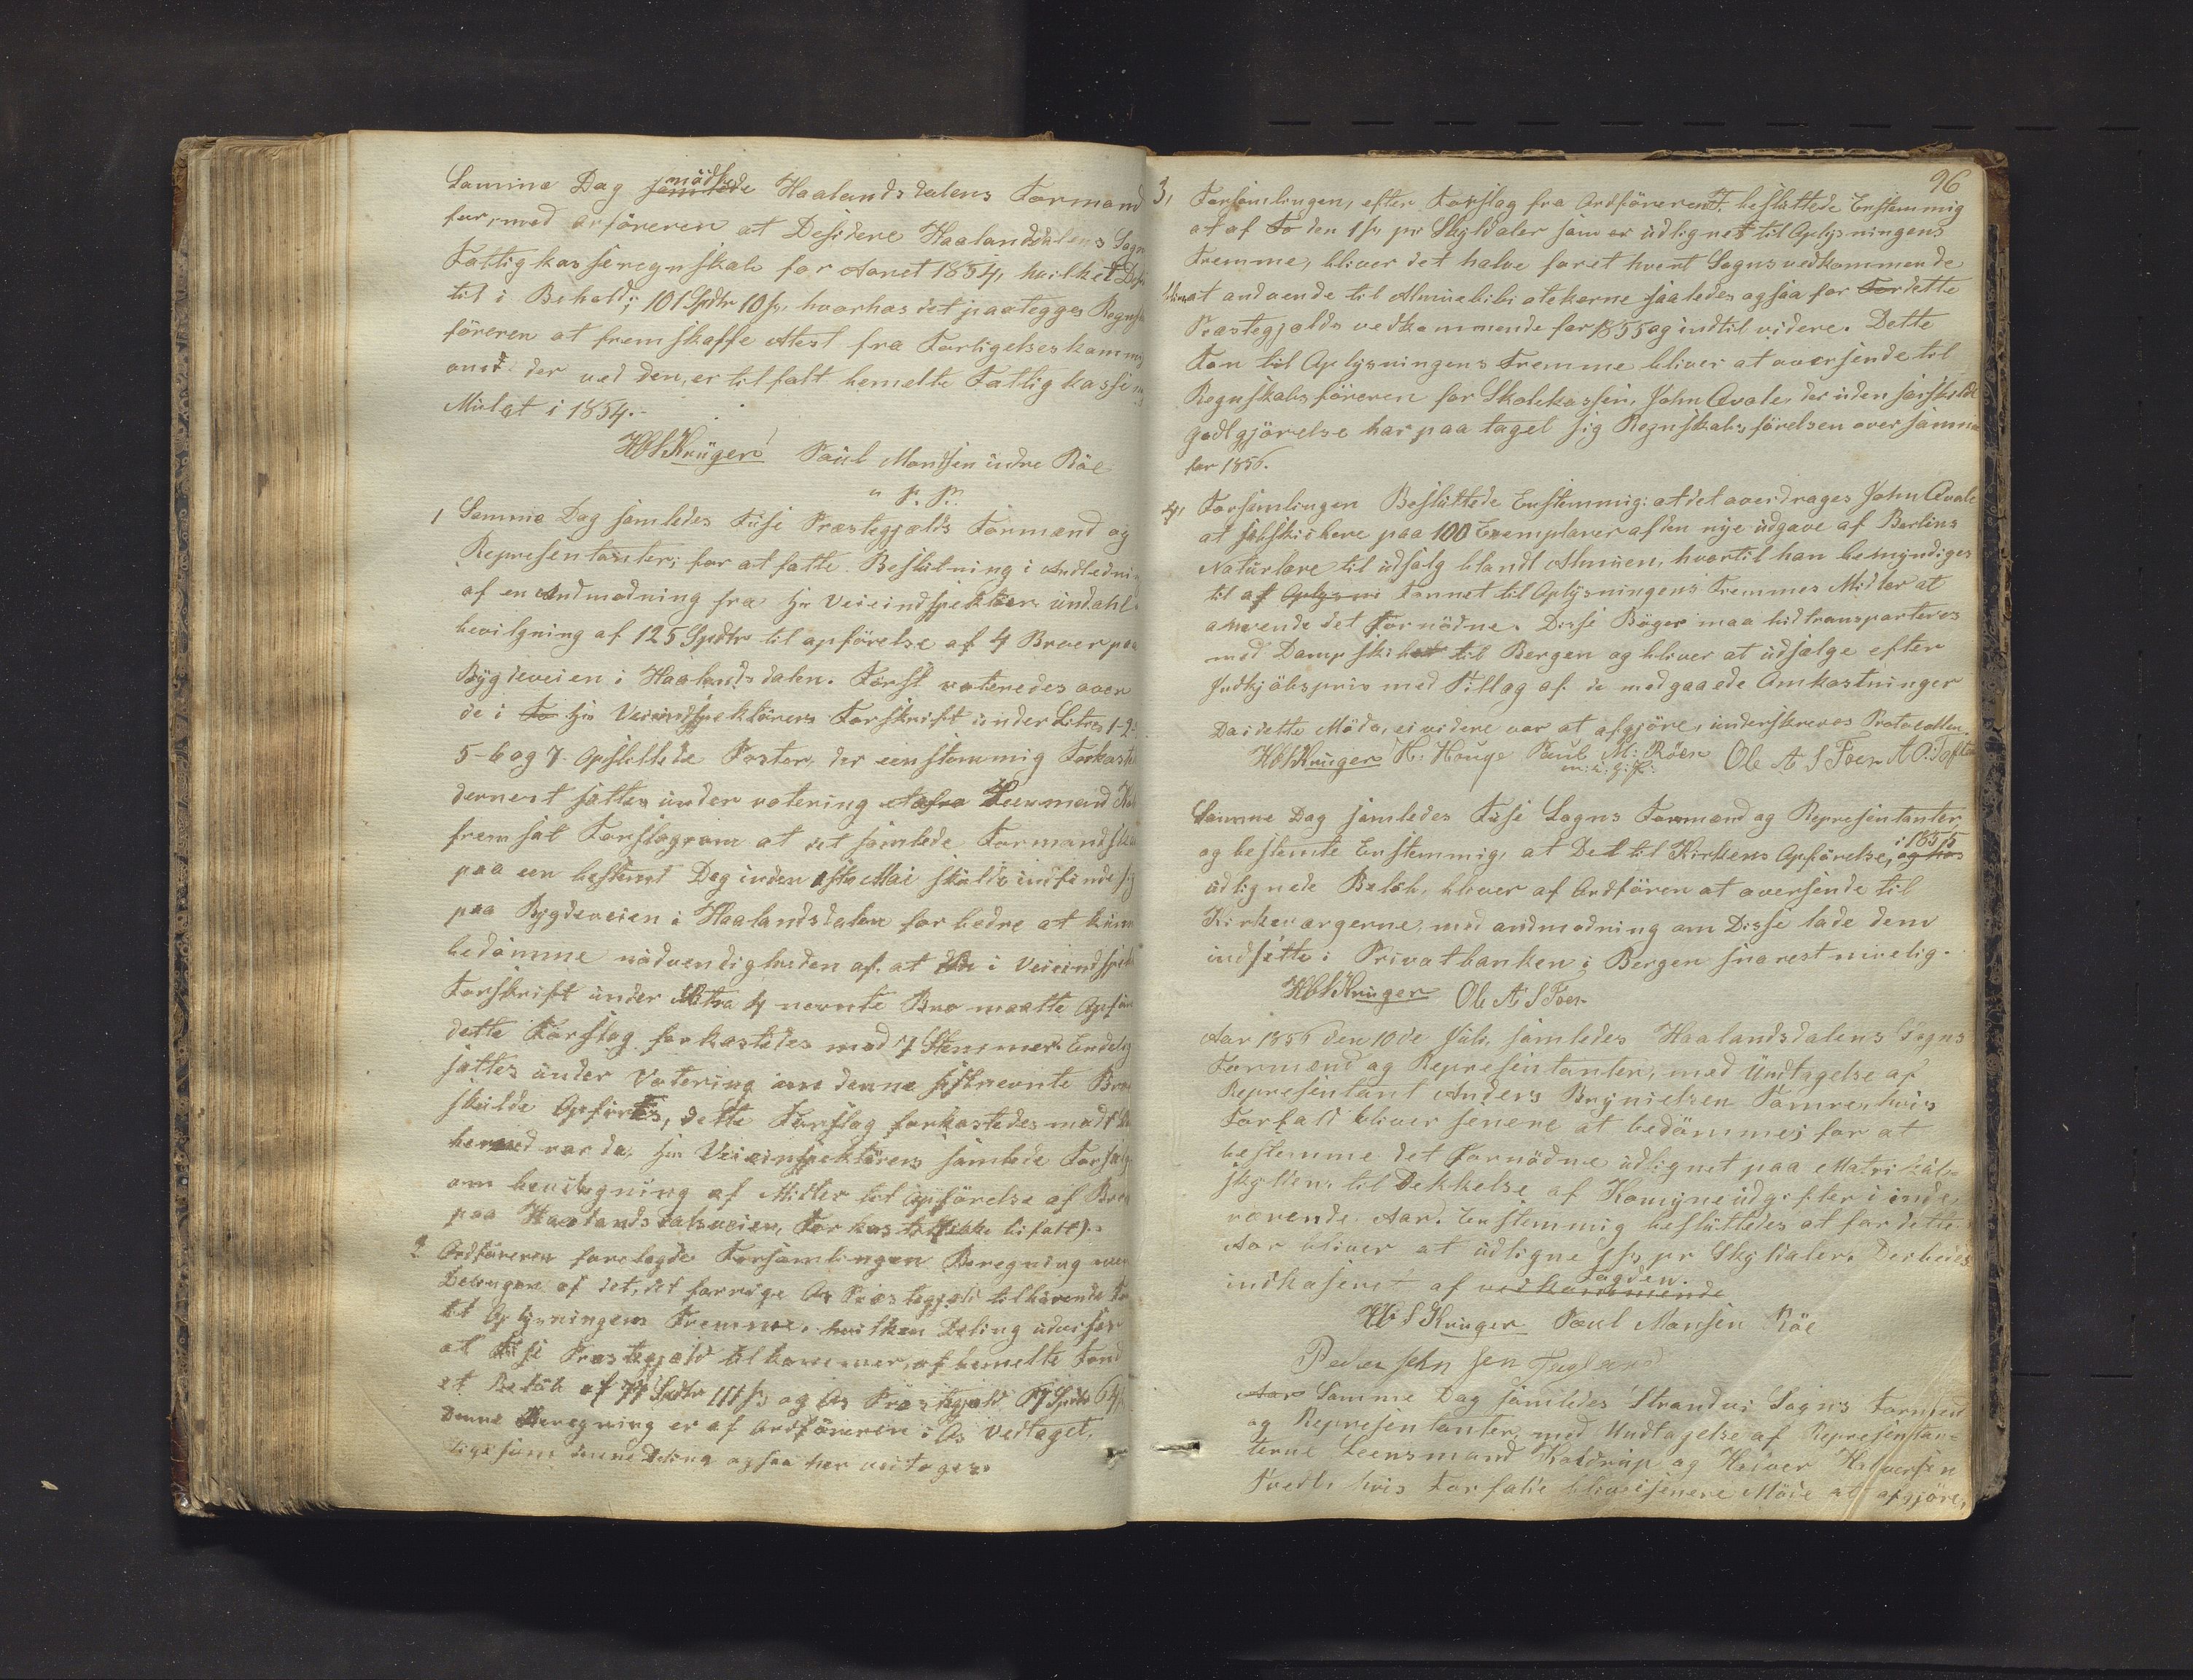 Samme Dag samlede mødte Haalandsdalens Formænd
før, med orføreren at Desidere Haalandsdalens Sogns
Fattigkasseregnskab for Aaret 1854, hvilket
til i Behold; 101 Spdlr 10 s, hvorhos det paalegges Regnsk
føreren at fremskaffe Attest fra Forligelseskommi
onet der ved den, er tilfalt bemelte Fattigkasse
Mulct i 1854.-
HOSKrüger Paul Mondsen indre Röe
m. f. P.
1 Samme Dag samledes Fuse Præstegjælds Formænd og
Repræsentanter; for at fatte Beslutning i Andledning
af en Andmodning fra Hr Veiindspektør
bevilgning af 125 Spdlr til opførelse af 4 Broer paa
Bygdeveien i Haalandsdalen. Først voteredes over
de i Fo Hr Veiindspektørens Forskrift under Litra 1-2-
5-6 og 7. opstillede Poster, der eenstemmig Forkaste
dernest sattes under votering Aafra Leensmand
fremsat Forslag om at det samlede Formandska
paa een bestemt Dag inden 1ste Mai skulde indfinde sig
paa Bygdeveien i Haalandsdalen for bedre at kunne
bedømme nødvendigheden af at den i Veiindspekt
Forskrift under Litra 4 nevnte Bro maatte Opfør
dette Forslag forkastedes med 7 Stemmer. Endelig
sattes under Votering om denne sistnevnte Bro
skulde Opføres, dette Forslag forkastedes med
hermed var da, Hr Veiindspektørens samlede Forslag
om bevilgning af Midler til opførelse af Broer
paa Haalandsdalsveien, Forkastet (ikke bifalt).
2 Ordføreren forelagde Forsamlingen Beregning over
Delingen af det, det forrige Os Præstegjæld tilhørende Fo
til Oplysningens Fremme, hvilken Deling udviser
at Fuse Præstegjæld tilkommer, af bemelte Fond
et Beløb af 77 Spdlr 111 s, og Os Præstegjæld 67 Spdlr 64 s
Denne Beregning er af Ordføreren i Os Vedtaget,
ligesom denne Deling ogsaa her vedtoges.
96
3, Forsamlingen, efter Forslag fra Ordføreren, besluttede Enstemmig
at af Fo den 1 s, pr Skyldaler som er udlignet til Oplysningens
Fremme, bliver det halve foret hvert Sogns vedkommende
at andvende til Almuebibliotekerne saaledes ogsaa for For dette
Præstegjelds vedkommende for 1855 og indtil videre. Dette
Fon til Oplysningens Fremme bliver at oversende til
Regnskabsføreren for Skolekassen, John Qvale, der uden særskildt
godtgjørelse har paa taget sig Regnskabsførelsen over samme
for 1856.
4, Forsamlingen Besluttede Enstemmig: at det overdrages John Qvale
at subskribere paa 100 Exemplarer af den nye udgave af Berlins
Naturlære til udsalg blandt Almuen, hvortil han bemyndiges
til af Oplysni Fonnet til Oplysningens Fremmes Midler at
anvende det fornødne. Disse Bøger maa hidtransporteres
med Dampskibet til Bergen og bliver at udsælge efter
Indkjøbspris med Tillag af de medgaaede Omkostninger
Da i dette Møde, ei videre var at afgjøre, underskreves Protocollen.
HOSKrüger H. Hauge Paul M: Röen Ole A S Foer A O: Tofte
m: i: h: P:
Samme Dag samledes Fuse Sogns Formænd og Repræsentanter,
og bestemte Enstemmig, at Det til Kirkens Opførelse, i 1855 og hos
udlignede Beløb, bliver af Ordfören at oversende til
Kirkeværgerne, med andmodning om Disse lade dem
indsette i Privatbanken i Bergen snarest muelig.
HOSKrüger Ole A S Foer
Aar 1856 den 10de Juli, samledes Haalandsdalens Sogns
Formænd og Repræsentanter, med Undtagelse af
Repræsentant Anders Brynielsen Tømre, hvis
Forfald bliver senere at bedømme; for at
bestemme det Fornødne udlignet paa Matrikul-
skylden, til Dekkelse af Komyneudgifter i inde-
værende Aar. Enstemmig besluttedes at for dette
Aar bliver at udligne 1 s, pr Skyldaler, Der bedes
indkaseret af vedkommende Fogden.
HOSKrüger Paul Monsen Röe
Peder Johnsen Teigland
Aar Samme Dag samledes Strandvi Sogns Formend
og Repræsentanter, med Undtagelse af Repræsentan-
terne Leensmand Koldrup og Halver Halversen
Tvedt, hvis Forfald bliver i senere Møde at afgjøre,